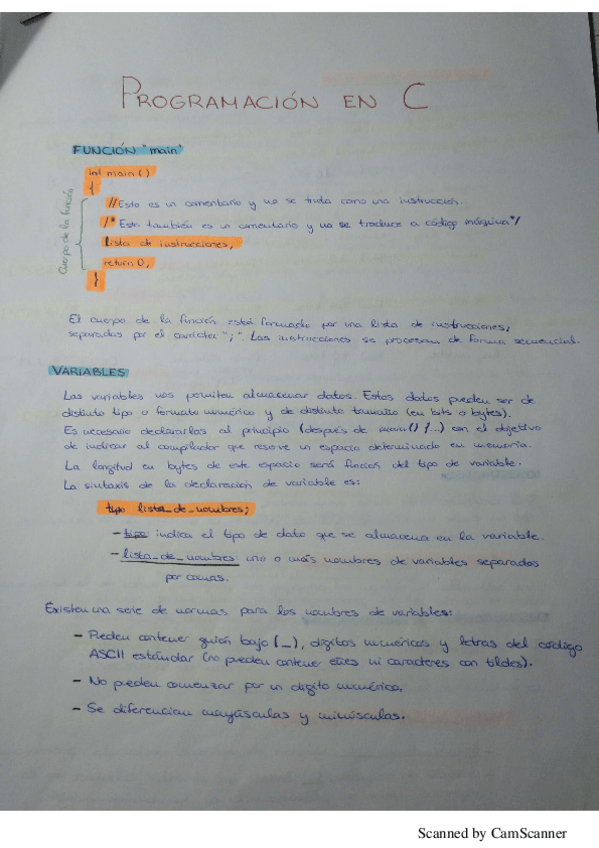 PROGRAMACIÓN EN C
FUNCIÓN "main"
int main ()
{
//Esto es un comentario y no se trata como una instrucción.
/*Esto también es un comentario y no se traduce a código máquina*/
Lista de instrucciones;
return 0;
}
Cuerpo de la función
El cuerpo de la función está formado por una lista de instrucciones,
separadas por el carácter ";". Las instrucciones se procesan de forma secuencial.
VARIABLES
Las variables nos permiten almacenar datos. Estos datos pueden ser de
distinto tipo o formato numérico y de distinto tamaño (en bits o bytes).
Es necesario declararlas al principio (después de main() {...) con el objetivo
de indicar al compilador que reserve un espacio determinado en memoria.
La longitud en bytes de este espacio será función del tipo de variable.
La sintaxis de la declaración de variable es:
tipo lista_de_nombres;
- tipo indica el tipo de dato que se almacena en la variable.
- lista_de_nombres: uno o más nombres de variables separados
por comas.
Existen una serie de normas para los nombres de variables:
- Pueden contener guión bajo (_), dígitos numéricos y letras del código
ASCII estándar (no pueden contener eñes ni caracteres con tildes).
- No pueden comenzar por un dígito numérico.
- Se diferencian mayúsculas y minúsculas.
Scanned by CamScanner